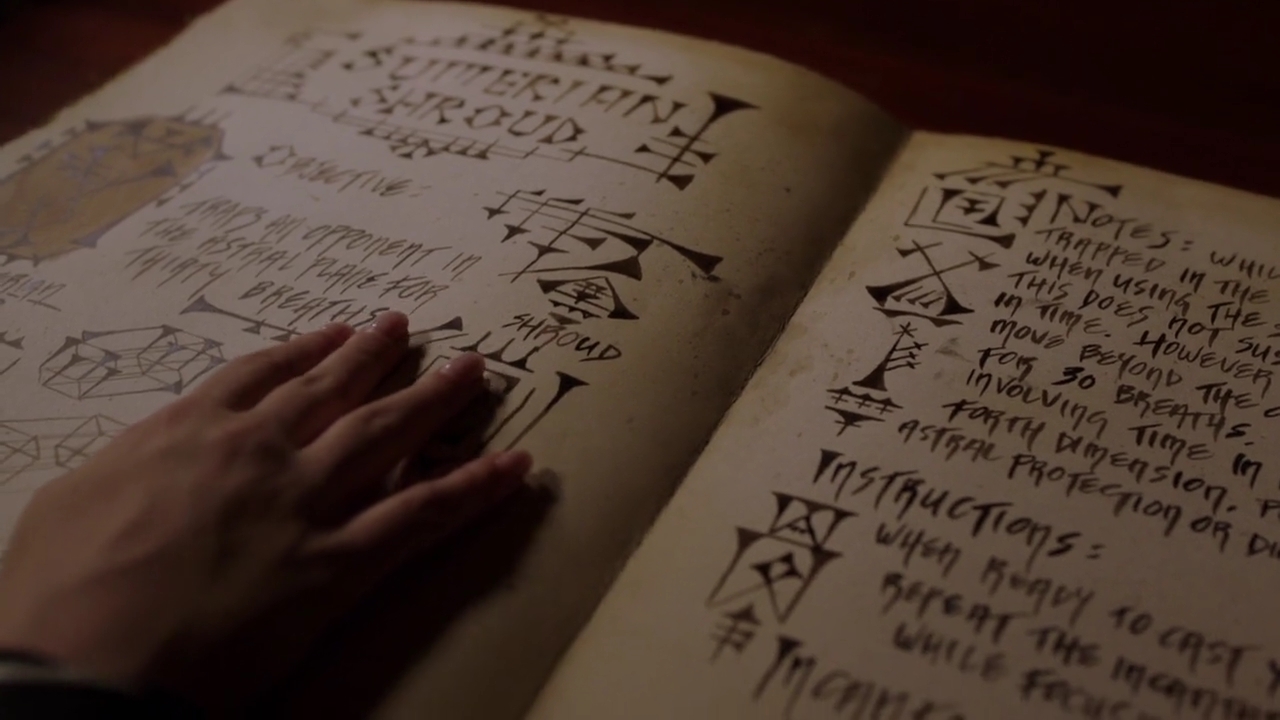 SUMERIAN
SHROUD
OBJECTIVE:
TRAPS AN OPPONENT IN
THE ASTRAL PLANE FOR
THIRTY BREATHS
SHROUD
NOTES: WHILE
TRAPPED IN THE
WHEN USING THE S
THIS DOES NOT SUS
IN TIME. HOWEVER
MOVE BEYOND THE
FOR 30 BREATHS.
INVOLVING TIME IN
FORTH DIMENSION.
ASTRAL PROTECTION OR DI
INSTRUCTIONS:
WHEN READY TO CAST Y
REPEAT THE INCANTA
WHILE FOCUS
INCAN